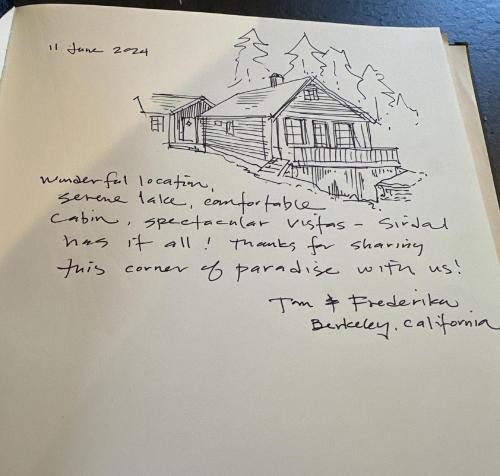 11 June 2024
Wonderful location,
serene lake, comfortable
cabin, spectacular vistas – Sirdal
has it all! Thanks for sharing
this corner of paradise with us!
Tom & Frederika
Berkeley, California